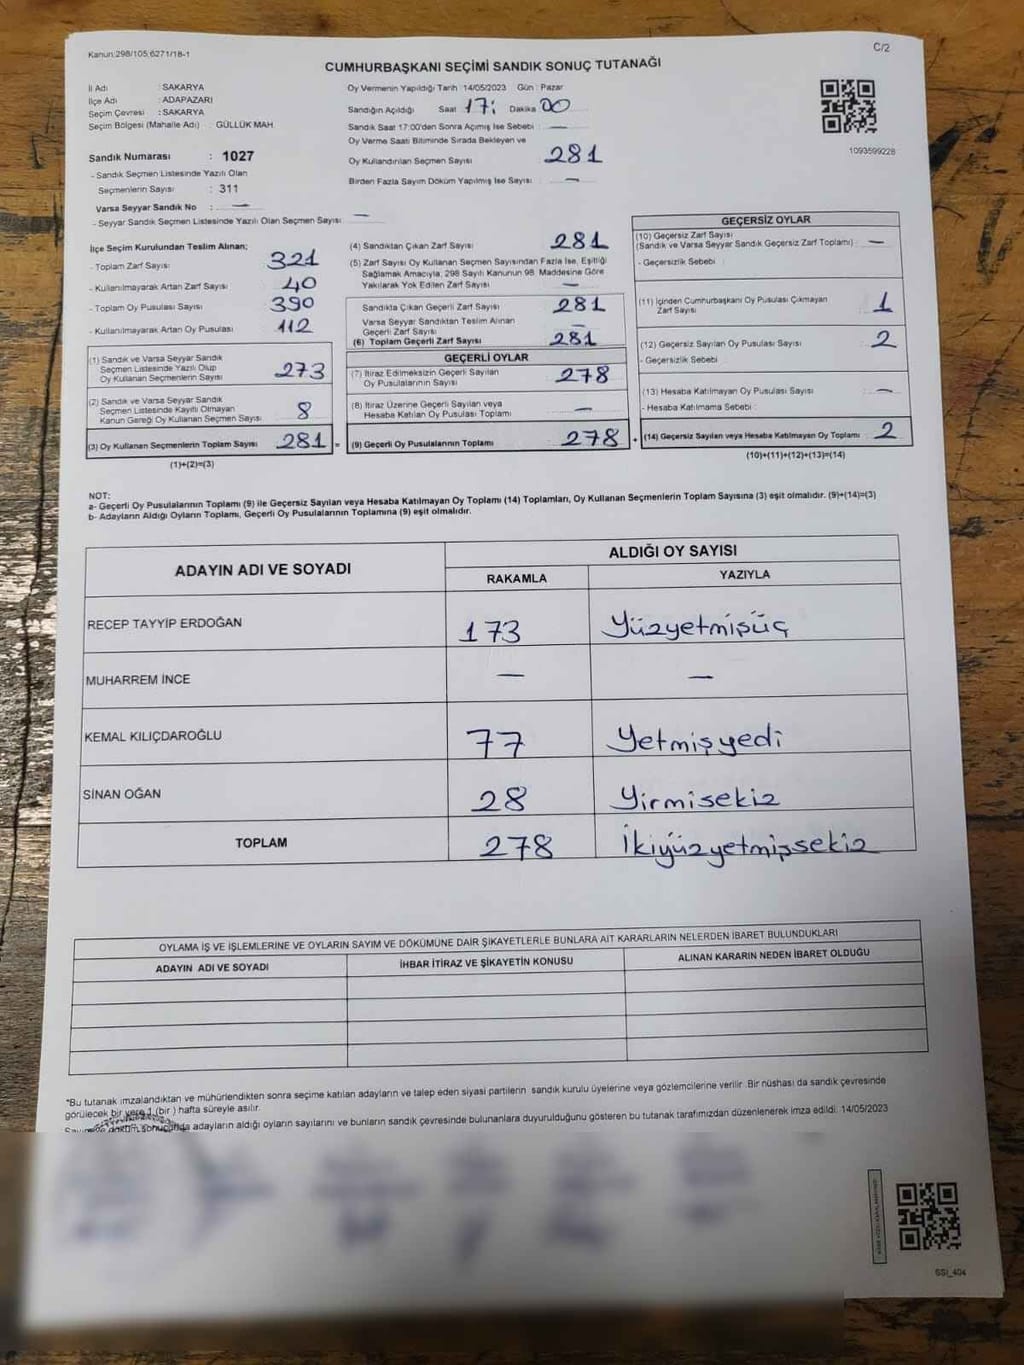 Kanun:298/105,6271/18-1
C/2
CUMHURBAŞKANI SEÇİMİ SANDIK SONUÇ TUTANAĞI
İl Adı : SAKARYA
İlçe Adı : ADAPAZARI
Seçim Çevresi : SAKARYA
Seçim Bölgesi (Mahalle Adı) : GÜLLÜK MAH.
Oy Vermenin Yapıldığı Tarih 14/05/2023 Gün : Pazar
Sandığın Açıldığı Saat 17: Dakika 00
Sandık Saat 17:00'den Sonra Açımış İse Sebebi : —
Oy Verme Saati Bitiminde Sırada Bekleyen ve
Oy Kullandırılan Seçmen Sayısı 281
Birden Fazla Sayım Döküm Yapılmış İse Sayısı : —
1093599228
Sandık Numarası : 1027
- Sandık Seçmen Listesinde Yazılı Olan
Seçmenlerin Sayısı : 311
Varsa Seyyar Sandık No : —
- Seyyar Sandık Seçmen Listesinde Yazılı Olan Seçmen Sayısı : —
İlçe Seçim Kurulundan Teslim Alınan;
- Toplam Zarf Sayısı 321
- Kullanılmayarak Artan Zarf Sayısı 40
- Toplam Oy Pusulası Sayısı 390
- Kullanılmayarak Artan Oy Pusulası 112
(1) Sandık ve Varsa Seyyar Sandık
Seçmen Listesinde Yazılı Olup
Oy Kullanan Seçmenlerin Sayısı 273
(2) Sandık ve Varsa Seyyar Sandık
Seçmen Listesinde Kayıtlı Olmayan
Kanun Gereği Oy Kullanan Seçmen Sayısı 8
(3) Oy Kullanan Seçmenlerin Toplam Sayısı 281 =
(1)+(2)=(3)
(4) Sandıktan Çıkan Zarf Sayısı 281
(5) Zarf Sayısı Oy Kullanan Seçmen Sayısından Fazla İse, Eşitliği
Sağlamak Amacıyla, 298 Sayılı Kanunun 98. Maddesine Göre
Yakılarak Yok Edilen Zarf Sayısı —
Sandıkta Çıkan Geçerli Zarf Sayısı 281
Varsa Seyyar Sandıktan Teslim Alınan
Geçerli Zarf Sayısı —
(6) Toplam Geçerli Zarf Sayısı 281
GEÇERLİ OYLAR
(7) İtiraz Edilmeksizin Geçerli Sayılan
Oy Pusulalarının Sayısı 278
(8) İtiraz Üzerine Geçerli Sayılan veya
Hesaba Katılan Oy Pusulası Toplamı —
(9) Geçerli Oy Pusulalarının Toplamı 278 +
GEÇERSİZ OYLAR
(10) Geçersiz Zarf Sayısı
(Sandık ve Varsa Seyyar Sandık Geçersiz Zarf Toplamı) : —
- Geçersizlik Sebebi :
(11) İçinden Cumhurbaşkanı Oy Pusulası Çıkmayan
Zarf Sayısı 1
(12) Geçersiz Sayılan Oy Pusulası Sayısı 2
- Geçersizlik Sebebi :
(13) Hesaba Katılmayan Oy Pusulası Sayısı —
- Hesaba Katılmama Sebebi :
(14) Geçersiz Sayılan veya Hesaba Katılmayan Oy Toplamı 2
(10)+(11)+(12)+(13)=(14)
NOT:
a- Geçerli Oy Pusulalarının Toplamı (9) ile Geçersiz Sayılan veya Hesaba Katılmayan Oy Toplamı (14) Toplamları, Oy Kullanan Seçmenlerin Toplam Sayısına (3) eşit olmalıdır. (9)+(14)=(3)
b- Adayların Aldığı Oyların Toplamı, Geçerli Oy Pusulalarının Toplamına (9) eşit olmalıdır.
ADAYIN ADI VE SOYADI
ALDIĞI OY SAYISI
RAKAMLA YAZIYLA
RECEP TAYYİP ERDOĞAN 173 Yüzyetmişüç
MUHARREM İNCE — —
KEMAL KILIÇDAROĞLU 77 Yetmişyedi
SİNAN OĞAN 28 Yirmisekiz
TOPLAM 278 İkiyüzyetmişsekiz
OYLAMA İŞ VE İŞLEMLERİNE VE OYLARIN SAYIM VE DÖKÜMÜNE DAİR ŞİKAYETLERLE BUNLARA AİT KARARLARIN NELERDEN İBARET BULUNDUKLARI
ADAYIN ADI VE SOYADI İHBAR İTİRAZ VE ŞİKAYETİN KONUSU ALINAN KARARIN NEDEN İBARET OLDUĞU
*Bu tutanak imzalandıktan ve mühürlendikten sonra seçime katılan adayların ve talep eden siyasi partilerin sandık kurulu üyelerine veya gözlemcilerine verilir. Bir nüshası da sandık çevresinde
görülecek bir yere 1 (bir ) hafta süreyle asılır.
Sayım ve döküm sonucunda adayların aldığı oyların sayılarını ve bunların sandık çevresinde bulunanlara duyurulduğunu gösteren bu tutanak tarafımızdan düzenlenerek imza edildi. 14/05/2023
SSİ_404